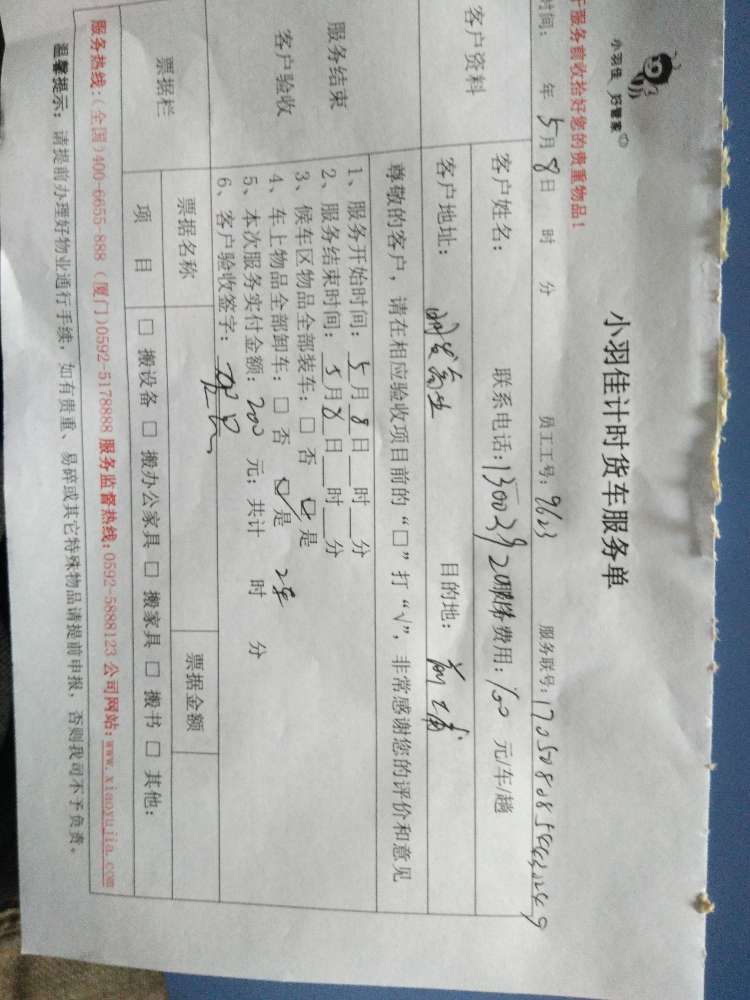 小羽佳 好管家
小羽佳计时货车服务单
于服务前收拾好您的贵重物品!
时间: 年 5月8日 时 分 员工工号: 9623 服务联号:
客户资料
客户姓名: 联系电话: 服务费用: 100 元/车/趟
客户地址: 目的地: 前埔
服务结束
客户验收
尊敬的客户，请在相应验收项目前的“□”打“√”，非常感谢您的评价和意见
1、服务开始时间: 5月8日 时 分
2、服务结束时间: 5月8日 时 分
3、候车区物品全部装车: □ 否 □ 是
4、车上物品全部卸车: □ 否 □ 是 2车
5、本次服务实付金额: 200 元; 共计 时 分
6、客户验收签字:
票据栏
票据名称 票据金额
项 目 □ 搬设备 □ 搬办公家具 □ 搬家具 □ 搬书 □ 其他:
服务热线:(全国)400-6655-888 (厦门)0592-5178888 服务监督热线:0592-5888123 公司网站:www.xiaoyujia.com
温馨提示: 请提前办理好物业通行手续，如有贵重、易碎或其它特殊物品请提前申报，否则我司不予负责。